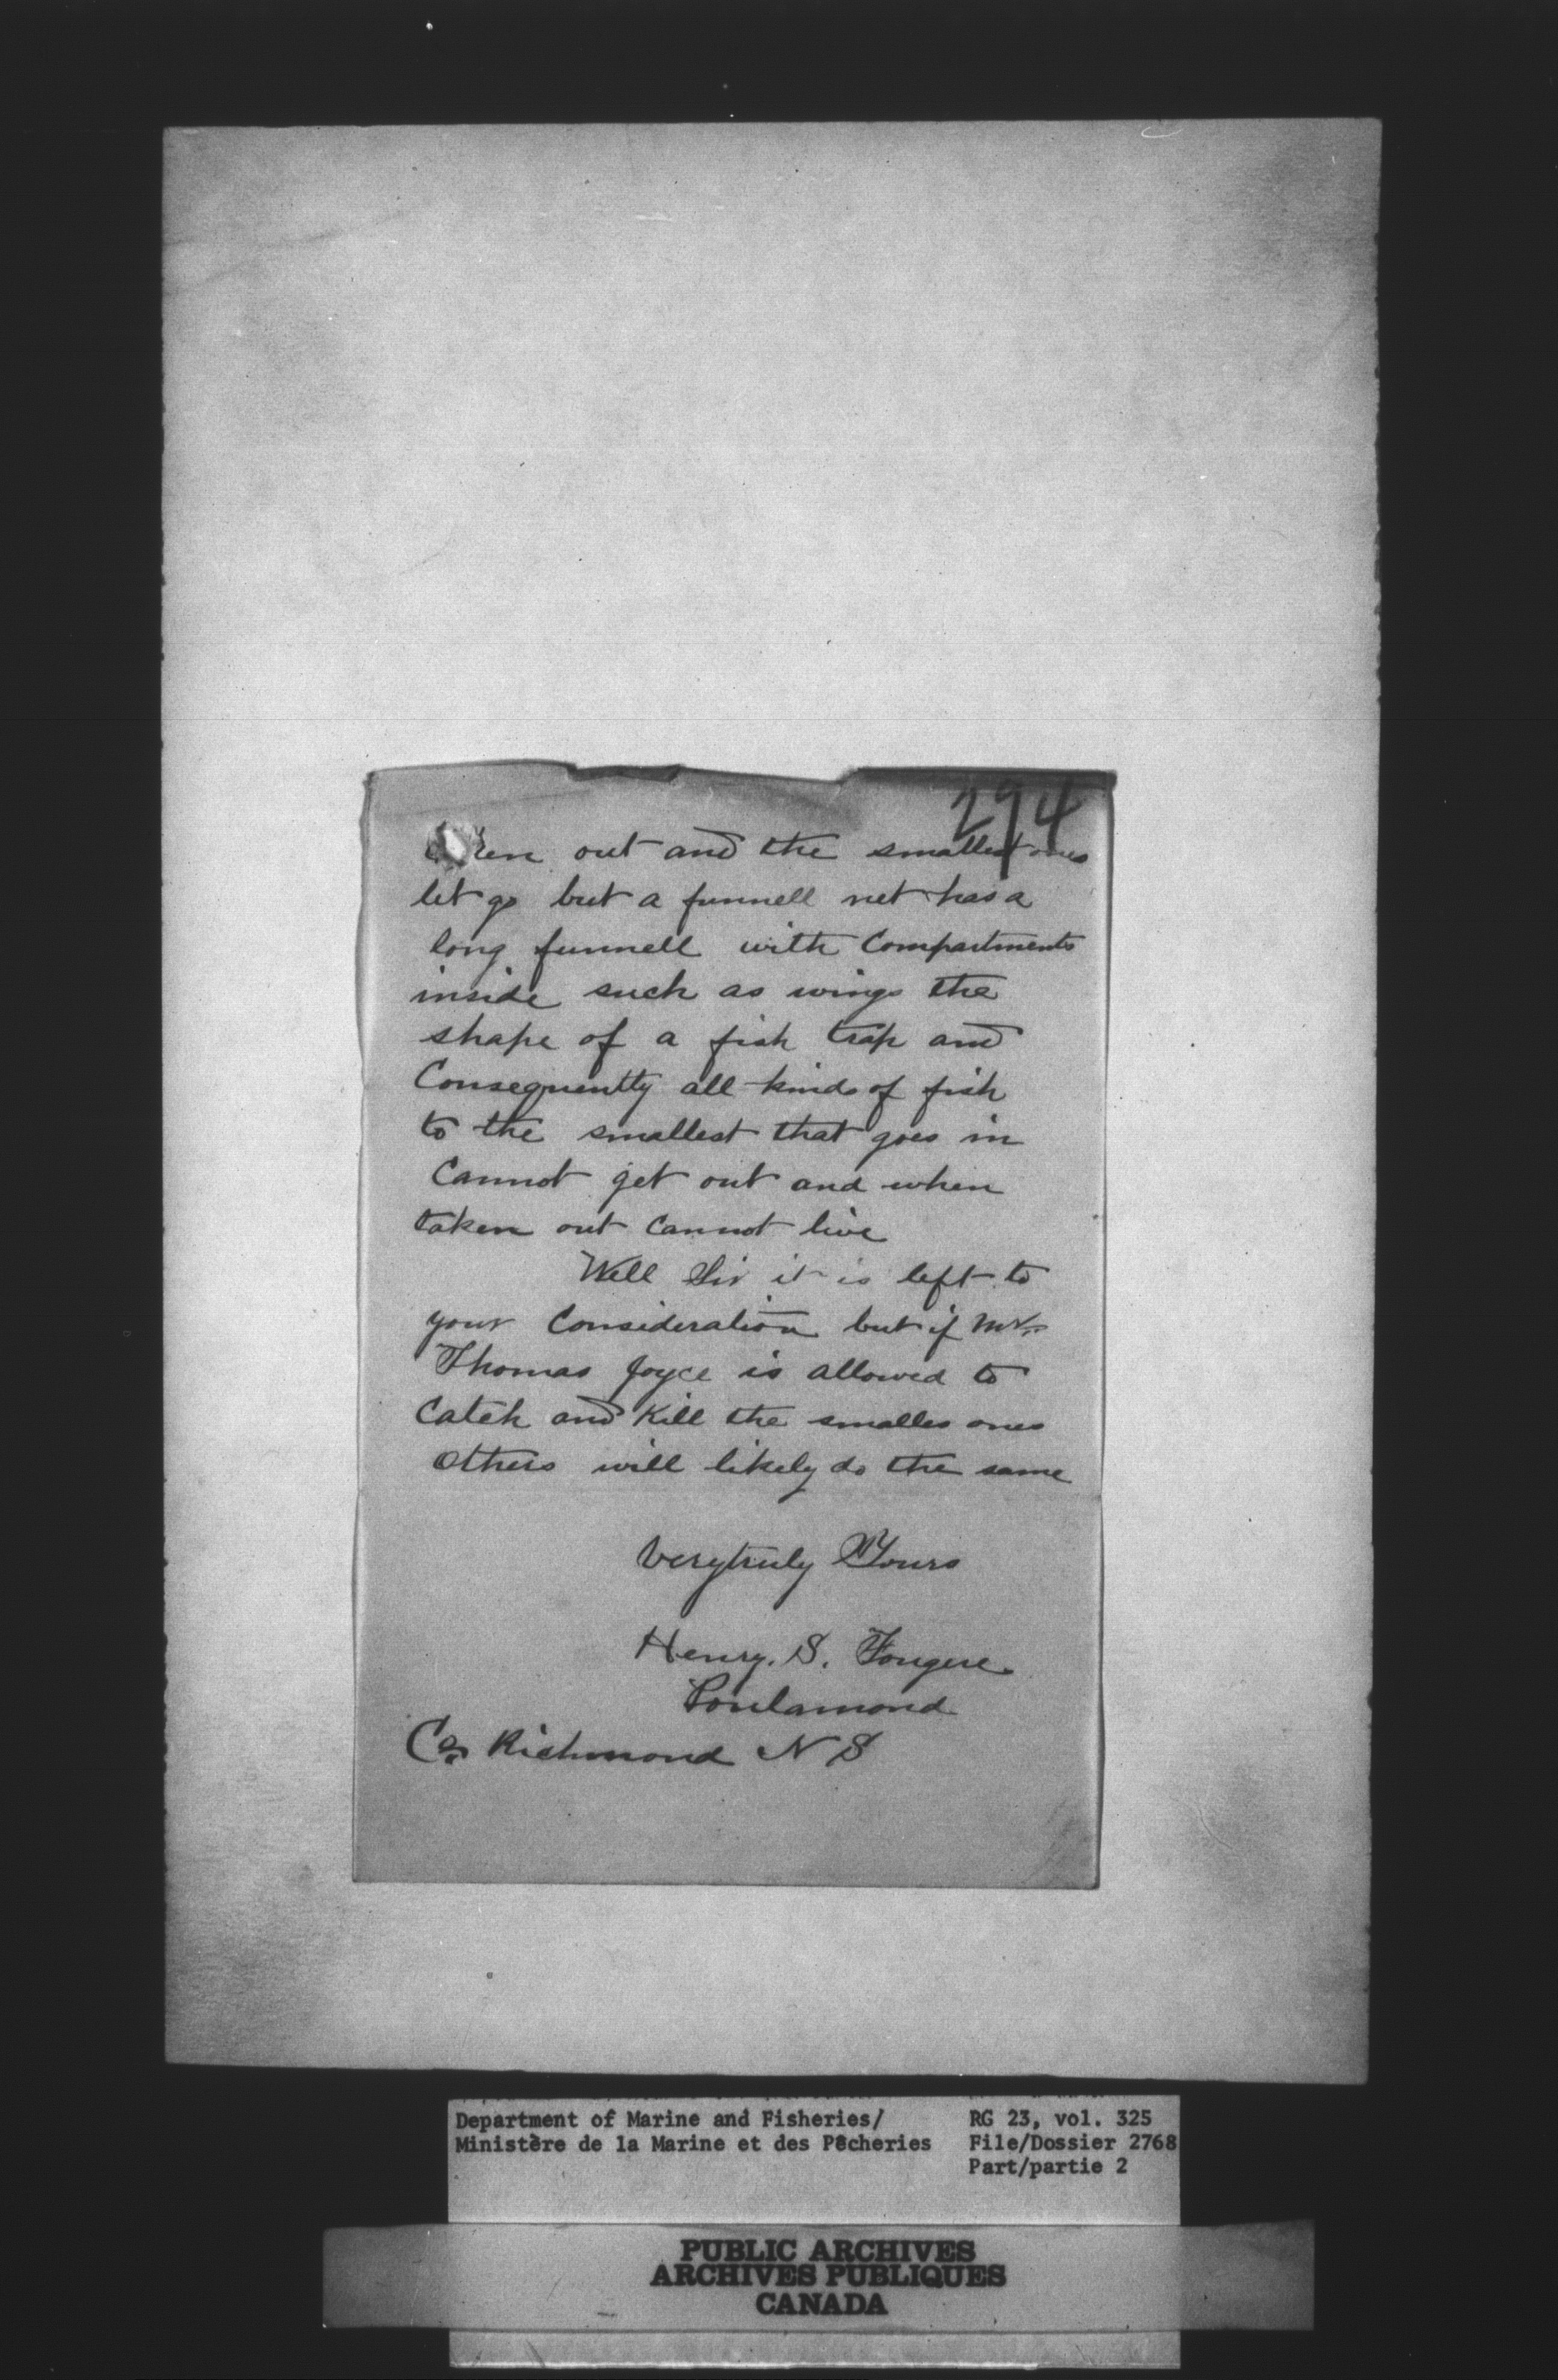 294
out and the smallest ones
let go but a funnell net has a
long funnell with Compartments
inside such as wings the
shape of a fish trap and
Consequently all kinds of fish
to the smallest that goes in
Cannot get out and when
taken out Cannot live
Well Sir it is left to
your Consideration but if Mr
Thomas Joyce is allowed to
Catch and Kill the smalles ones
Others will likely do the same
Very truly Yours
Henry. S. Fougere
Poulamond
Co Richmond N S
Department of Marine and Fisheries/
Ministère de la Marine et des Pêcheries
RG 23, vol. 325
File/Dossier 2768
Part/partie 2
PUBLIC ARCHIVES
ARCHIVES PUBLIQUES
CANADA